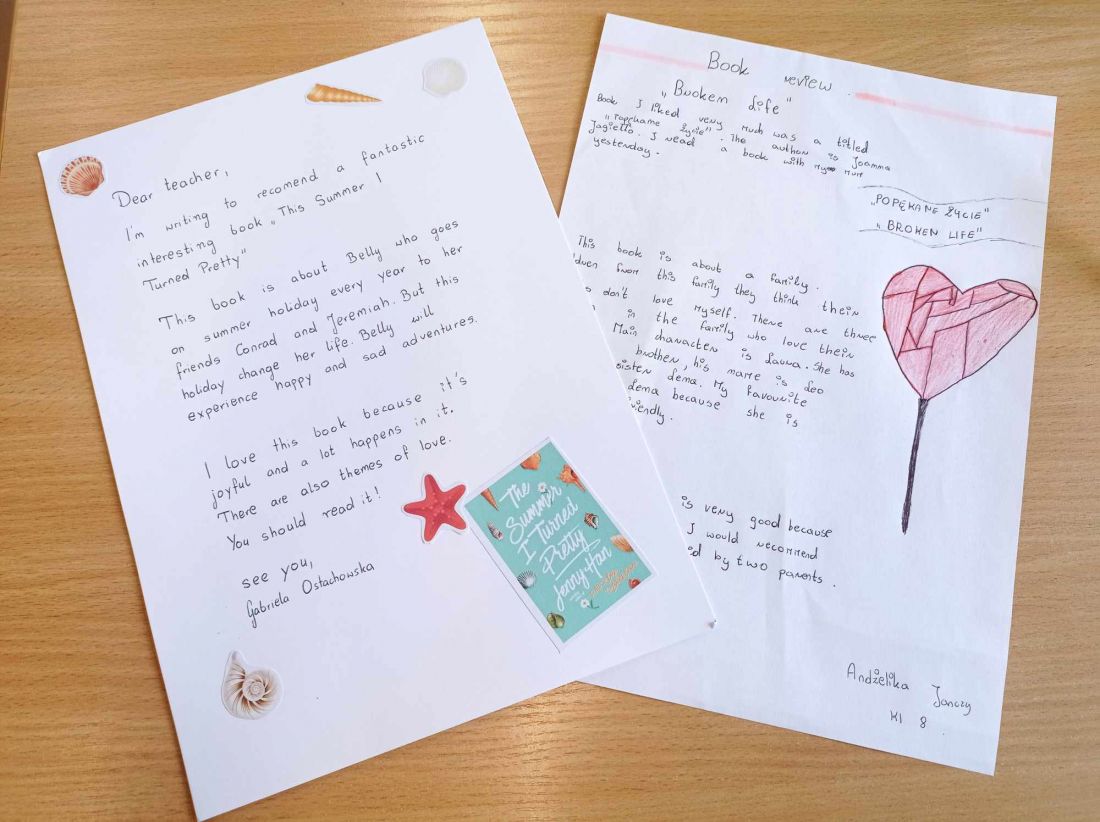 Dear teacher,
I'm writing to recomend a fantastic
interesting book „This Summer I
Turned Pretty"
This book is about Belly who goes
on summer holiday every year to her
friends Conrad and Jeremiah. But this
holiday change her life. Belly will
experience happy and sad adventures.
I love this book because it's
joyful and a lot happens in it.
There are also themes of love.
You should read it!
see you,
Gabriela Ostachowska
The
Summer
I Turned
Pretty
Jenny Han
Book review
„Broken Life"
Book I liked very much was a titled
„Popękane życie". The author is Joanna
Jagiełło. I read a book with my mum
yesterday.
„POPĘKANE ŻYCIE"
„BROKEN LIFE"
This book is about a family.
from this family they think their
don't love myself. There are three
in the family who love their
Main character is Laura. She has
brother, his name is Leo
sister Lena. My favourite
Lena because she is
is very good because
I would recommend
by two parents.
Andżelika Janczy
Kl 8